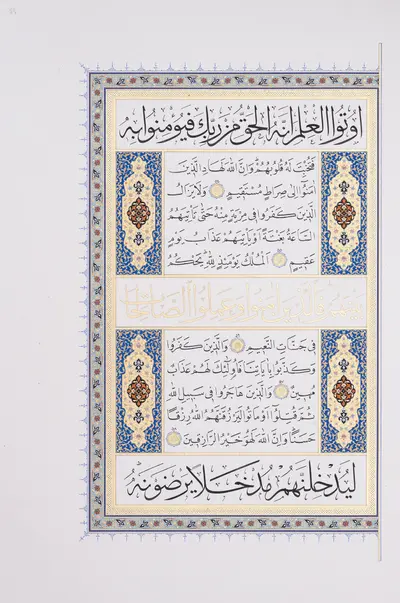 اوتوا العلم انه الحق من ربك فيؤمنوا به
فَتُخْبِتَ لَهُ قُلُوبُهُمْ وَاِنَّ اللهَ لَهَادِ الَّذِينَ
آمَنُوا اِلَى صِرَاطٍ مُسْتَقِيمٍ وَلَا يَزَالُ
الَّذِينَ كَفَرُوا فِي مِرْيَةٍ مِنْهُ حَتَّى تَاْتِيَهُمُ
السَّاعَةُ بَغْتَةً اَوْ يَاْتِيَهُمْ عَذَابُ يَوْمٍ
عَقِيمٍ اَلْمُلْكُ يَوْمَئِذٍ لِلهِ يَحْكُمُ
بينهم فالذين امنوا وعملوا الصالحات
فِي جَنَّاتِ النَّعِيمِ وَالَّذِينَ كَفَرُوا
وَكَذَّبُوا بِاٰيَاتِنَا فَاُولٰئِكَ لَهُمْ عَذَابٌ
مُهِينٌ وَالَّذِينَ هَاجَرُوا فِي سَبِيلِ اللهِ
ثُمَّ قُتِلُوا اَوْ مَاتُوا لَيَرْزُقَنَّهُمُ اللهُ رِزْقًا
حَسَنًا وَاِنَّ اللهَ لَهُوَ خَيْرُ الرَّازِقِينَ
ليدخلنهم مدخلا يرضونه